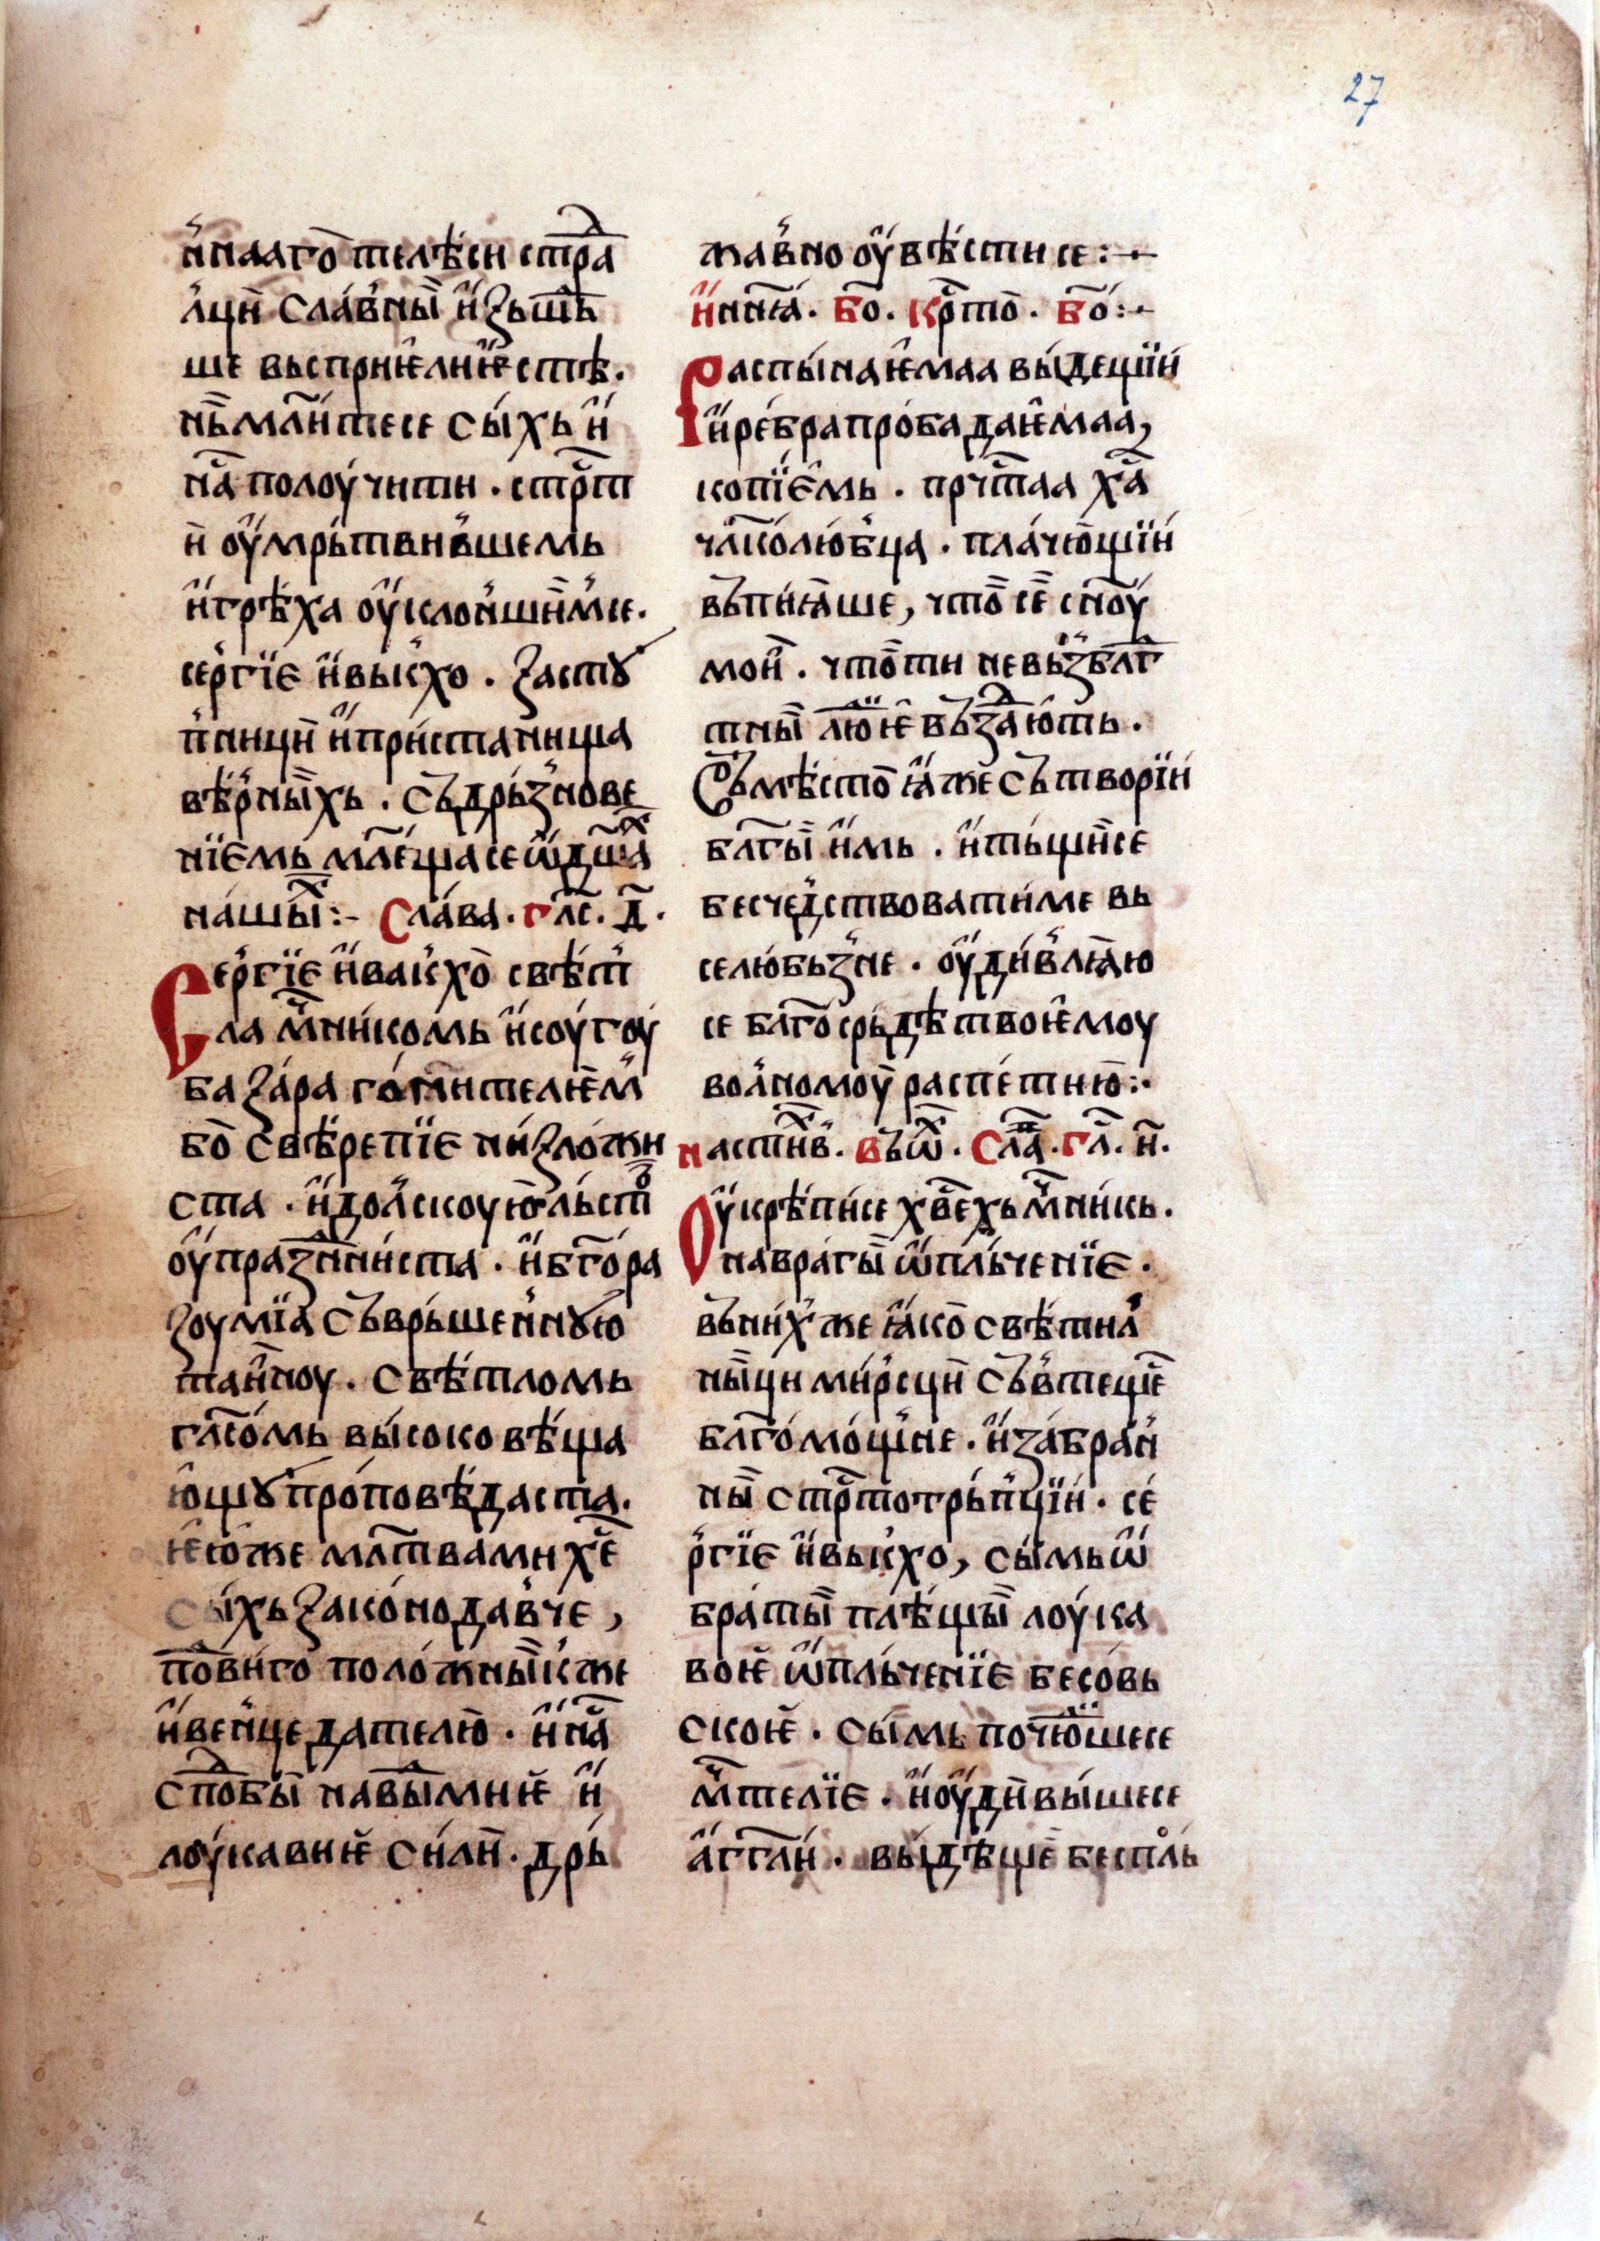 27
и҆наагѡ̀ телѣси стрⷣа
лци̏ сла́вныи̏ и҆ зьшь
ше вьспрїѥ҆ли ѥ҆стѣ.
нь̏ мл҃и́тесе сы́хь и҆
на҃ полоу́чити. стрⷭ҇т
и̏ оу҆мрь́твившемь
и҆ грѣ́ха оу҆клоншимⷭ҇се.
се́ргїе и҆ вькхо. застꙋ
пници̏ и҆ при́станища
вѣ́рныи̏хь. съдрьзнове
нїе҆мь мл҃е́щасе ѿ дш҃аⷯ
на́шыⷯ:- Сла́ва. гла҃с. д҃.
Се́ргїе и҆ вакхо̀ свѣ́т
ла мⷱ҇ни́комь и҆ соугоу́
ба за́ра го́нителѥ҆м
бѡ̀ свѣ́репїе ни́зложи
ста. и҆ до́лскоую̀ льстⷡ҇
оу҆праздни́ста. и҆ бг҃ора
зоумїа съврь́шеннꙋю
таи̏ноу. свѣ́тломь
гла҃со́мь высоко вѣ́ща
ю҆щꙋ пропо́вѣдаста.
ѥ҆ю́же мл҃твами хе҃
сы́хь зако́нодавче,
подви́го поло́жныи̏кже
и҆ ве́нцедателю̀. и҆ на҃
сподо́бы̏ на вы̏мнѥ̀ и҆
лоу́кавнѥ̀ си́ли̏. дрь́
жа́вно оу҆вѣ́стисе:-
и҆ нн҃ꙗ. бо҃. крⷭ҇то̀. бо҃:-
Распы́наѥ҆маа вы́дещїи
и҆ ре́бра про́бадаѥ҆маа,
копїе҆мь. прⷱ҇таа ха҃
чл҃колю́бца. пла́чю̀щїи
въпи́ꙗше, что̏ се̏ сн҃оу́
мои̏. что̏ ти невь́зблг҃
тныи̏ людїѥ̀ въздаю́ть.
Въмѣ́сто̏ ꙗ҆же съ́творїи
бл҃гы̏ и҆мь. и҆ тьщи̏се
бесче́дствовати́ ме вь
селю́бьзне. оу҆ди́влꙗ̀ю
се бл҃го́срь́дѣ твоѥ҆моу
во́лномоу̏ распе́тию̀:·
на стиⷯв. въѿⷯ. Слаⷡ҇. гл҃. и҃.
Оу҆крѣ́писе хве҃ хь мⷱ҇ни́кь.
на враѓы̏ ѿпль́ченїе.
въни́хже ꙗ҆ко̀ свѣ́тил
ны̏ци ми́рсци̏ съвтещѐ
бл҃го́мо́щне. и҆ за́бран
ны̏ стрⷭ҇тотрьпцїи. се́
ргїе и҆ вькхо, сы́мь ѿ
бра́ты̏ плѣ́щы̏ лоу́ка
воѥ̀ ѿпль́ченїе бесо́вь
скоѥ̀. сы́мь почю̏дїшесе
мⷱ҇телїе. и҆ оу҆ди̏вы́шесе
а҆гг҃ли. вы́дѣщѐ беспль́